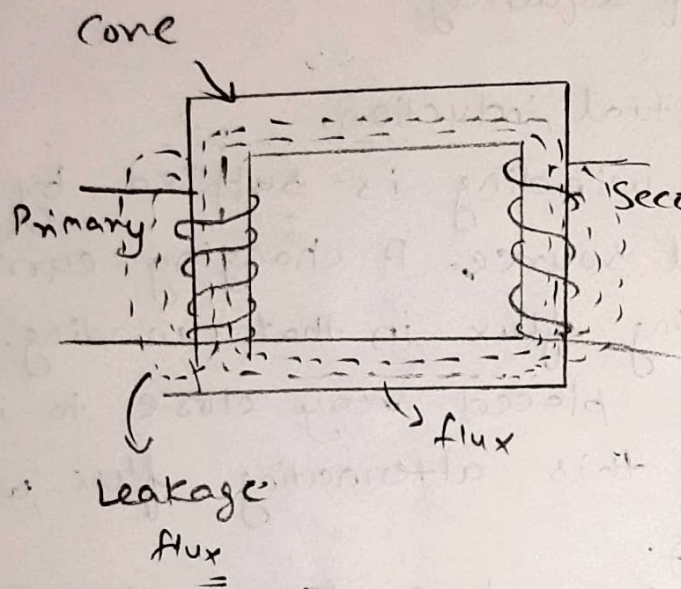 Core
Primary
Seco
flux
Leakage
flux